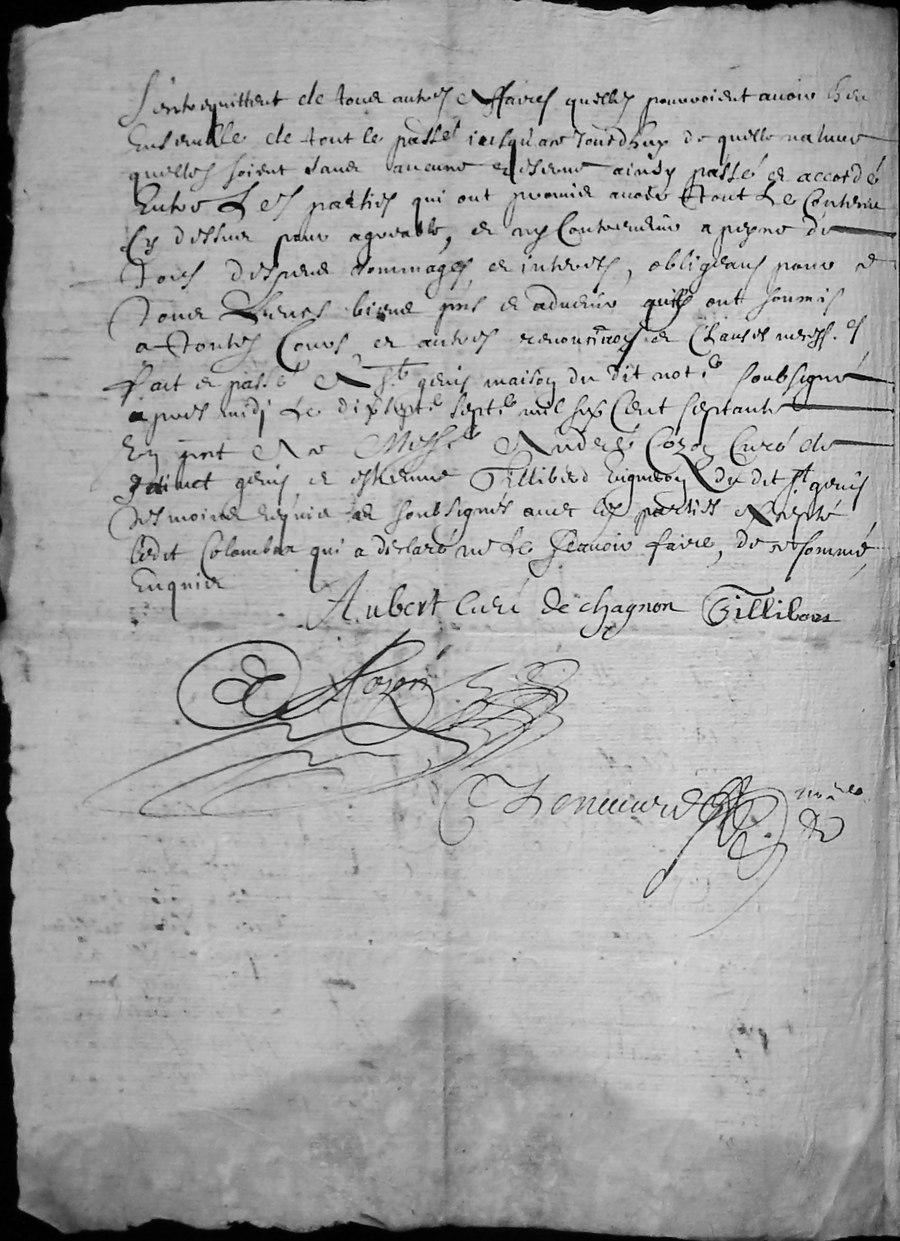 s'entrequittent de tous autres affaires quelles pourroient avoir heu
Ensemble de tout le passé jusques a ce Jourdhuy de quelle nature
quelles soient sans aucune reserve ainsy passé et accordé
Entre Les parties qui ont promis avoir tout Le Contenu
Cy dessus pour agreable, et ny Contrevenir a peyne de
Tous despens dommages et interets, obligeans pour ce
Tous Leurs biens pnts et advenir quils ont soumis
a toutes Cours et autres renon et Clauses necess.es
fait et passé a St genis maison du dit not.e soubsigné
apres midj Le dixsept.e sept.e mil six Cent septante
En pnt Mess.e André Cozon Curé de
genis et estienne Tillibard du dit St genis
tesmoins requis et soubsignés avec les parties Excepté
ledit Colombar qui a declaré ne Le scavoir faire, de ce sommé
Enquis
Aubert Curé de chagnon Tillibard
Cozon
not.re